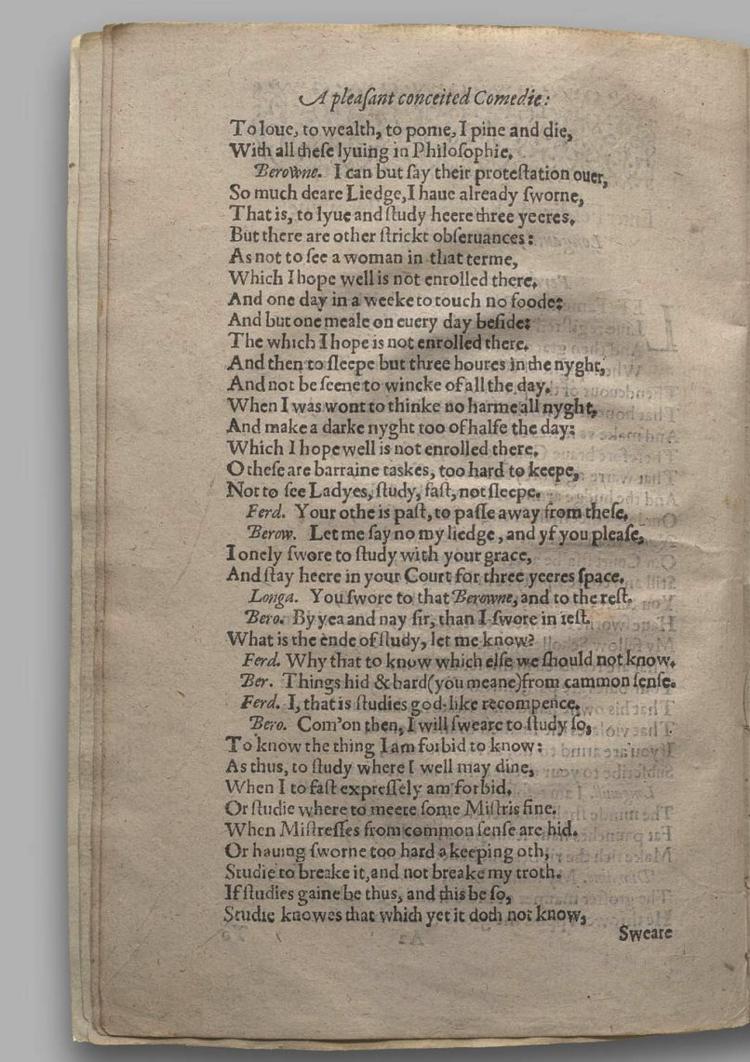 A pleaſant conceited Comedie:
To loue, to wealth, to pome, I pine and die,
With all theſe lyuing in Philoſophie.
Berowne. I can but ſay their proteſtation ouer,
So much deare Liedge, I haue already ſworne,
That is, to lyue and ſtudy heere three yeeres.
But there are other ſtrickt obſeruances:
As not to ſee a woman in that terme,
Which I hope well is not enrolled there.
And one day in a weeke to touch no foode:
And but one meale on euery day beſide:
The which I hope is not enrolled there.
And then to ſleepe but three houres in the nyght,
And not be ſeene to wincke of all the day.
When I was wont to thinke no harme all nyght,
And make a darke nyght too of halfe the day:
Which I hope well is not enrolled there.
O theſe are barraine taskes, too hard to keepe,
Not to ſee Ladyes, ſtudy, faſt, not ſleepe.
Ferd. Your othe is paſt, to paſſe away from theſe.
Berow. Let me ſay no my liedge, and yf you pleaſe,
I onely ſwore to ſtudy with your grace,
And ſtay heere in your Court for three yeeres ſpace.
Longa. You ſwore to that Berowne, and to the reſt.
Bero. By yea and nay ſir, than I ſwore in ieſt.
What is the ende of ſtudy, let me know?
Ferd. Why that to know which elſe we ſhould not know.
Ber. Things hid & bard (you meane) from cammon ſenſe.
Ferd. I, that is ſtudies god-like recompence.
Bero. Com'on then, I will ſweare to ſtudy ſo,
To know the thing I am forbid to know:
As thus, to ſtudy where I well may dine,
When I to faſt expreſſely am forbid.
Or ſtudie where to meete ſome Miſtris fine.
When Miſtreſſes from common ſenſe are hid.
Or hauing ſworne too hard a keeping oth,
Studie to breake it, and not breake my troth.
If ſtudies gaine be thus, and this be ſo,
Studie knowes that which yet it doth not know,
Sweare